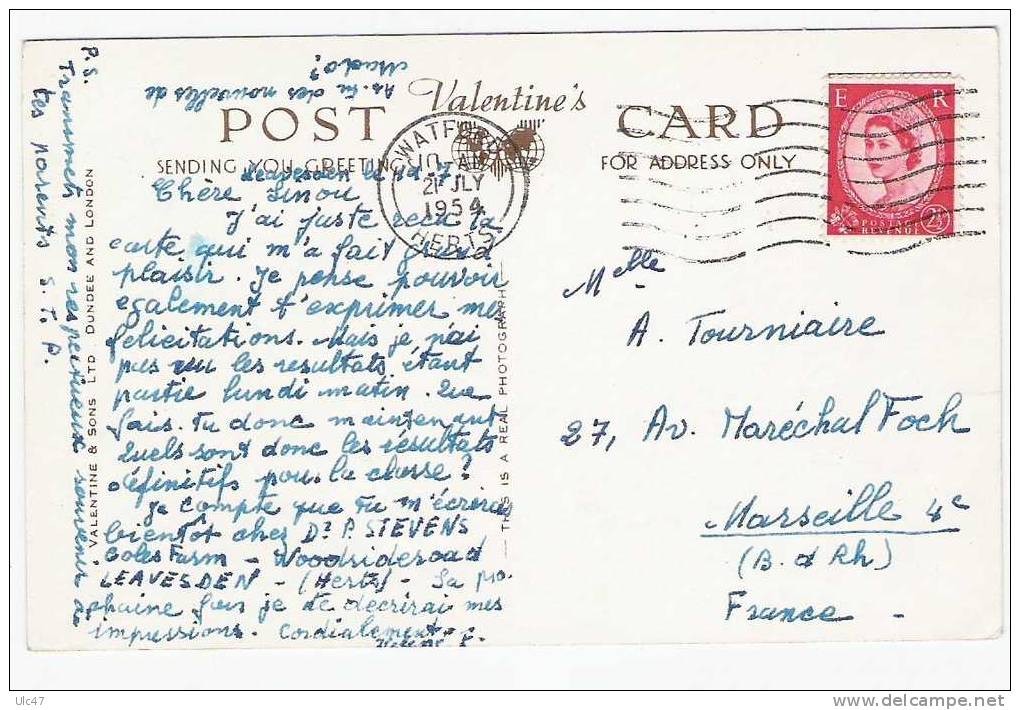 POST
Valentine's
CARD
SENDING YOU GREETING
FOR ADDRESS ONLY
WATFORD
10 AM
21 JLY
1954
HERTS
E R
POSTAGE
REVENUE
2½
Leavesden le
Chere Linou
J'ai juste recu ta
carte qui m'a fait grand
plaisir. Je pense pouvoir
egalement t'exprimer mes
felicitations. Mais je n'ai
pas vu les resultats, étant
partie lundi matin. Que
fais-tu donc maintenant
Quels sont donc les résultats
définitifs pour la classe?
Je compte que tu m'écriras
bientot chez Dr P. STEVENS
Coles Farm - Woodsideroad
LEAVESDEN - (Hertz) - La pro
chaine fois je te decrirai mes
impressions. Cordialement
P.S.
Transmets mon respectueux souvenir à
tes parents S.T.P.
As-tu des nouvelles de
Mado?
VALENTINE & SONS LTD DUNDEE AND LONDON
THIS IS A REAL PHOTOGRAPH
Melle
A. Tourniaire
27, Av. Maréchal Foch
Marseille 4e
(B. d Rh)
France -
Ulc47
delcampe.net